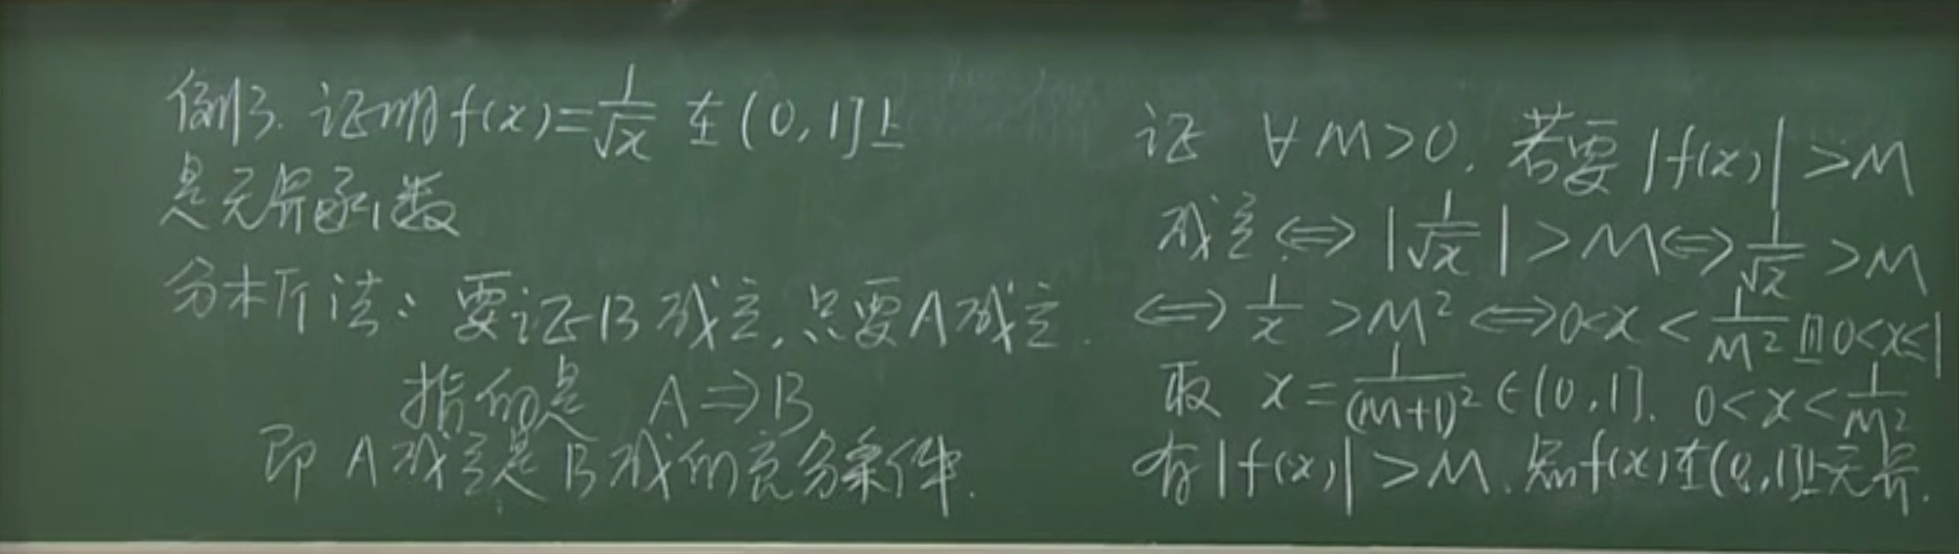 例3. 证明 f(x)=1/√x 在 (0,1]上
是无界函数
分析法: 要证B成立,只要A成立.
指的是 A⇒B
即 A成立是B成的充分条件.
证 ∀M>0, 若要 |f(x)|>M
成立 ⇔ |1/√x|>M ⇔ 1/√x>M
⇔ 1/x>M² ⇔ 0<x<1/M² 且0<x≤1
取 x=1/(M+1)² ∈(0,1]. 0<x<1/M²
有|f(x)|>M. 知f(x)在(0,1]上无界.